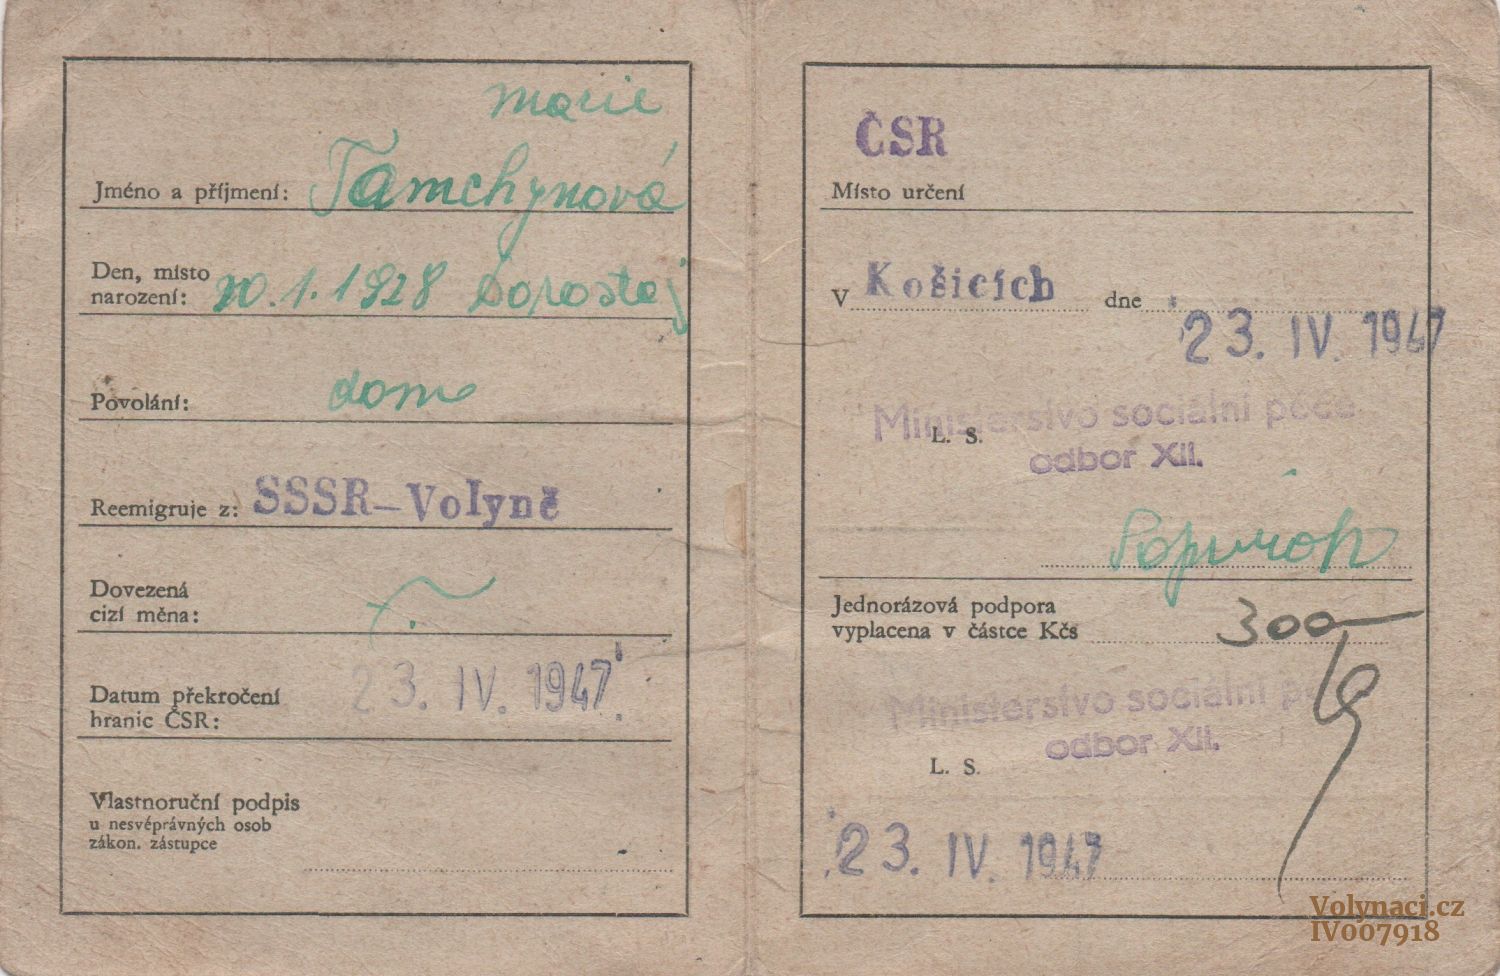 Marie
Jméno a příjmení: Tamchynová
Den, místo
narození: 20.1.1928 Dorostaj
Povolání: dom
Reemigruje z: SSSR–Volyně
Dovezená
cizí měna:
Datum překročení
hranic ČSR: 23. IV. 1947
Vlastnoruční podpis
u nesvéprávných osob
zákon. zástupce
ČSR
Místo určení
V Košicích dne 23. IV. 1947
Ministerstvo sociální péče
L. S.
odbor XII.
Jednorázová podpora
vyplacena v částce Kčs 300
Ministerstvo sociální péče
odbor XII.
L. S.
23. IV. 1947
Volynaci.cz
IV007918